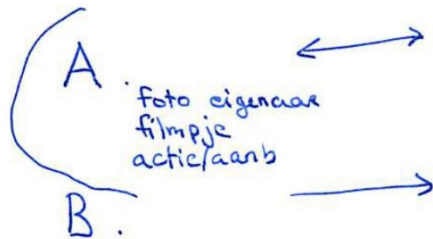 A.
foto eigenaar
filmpje
actie/aanb
B.